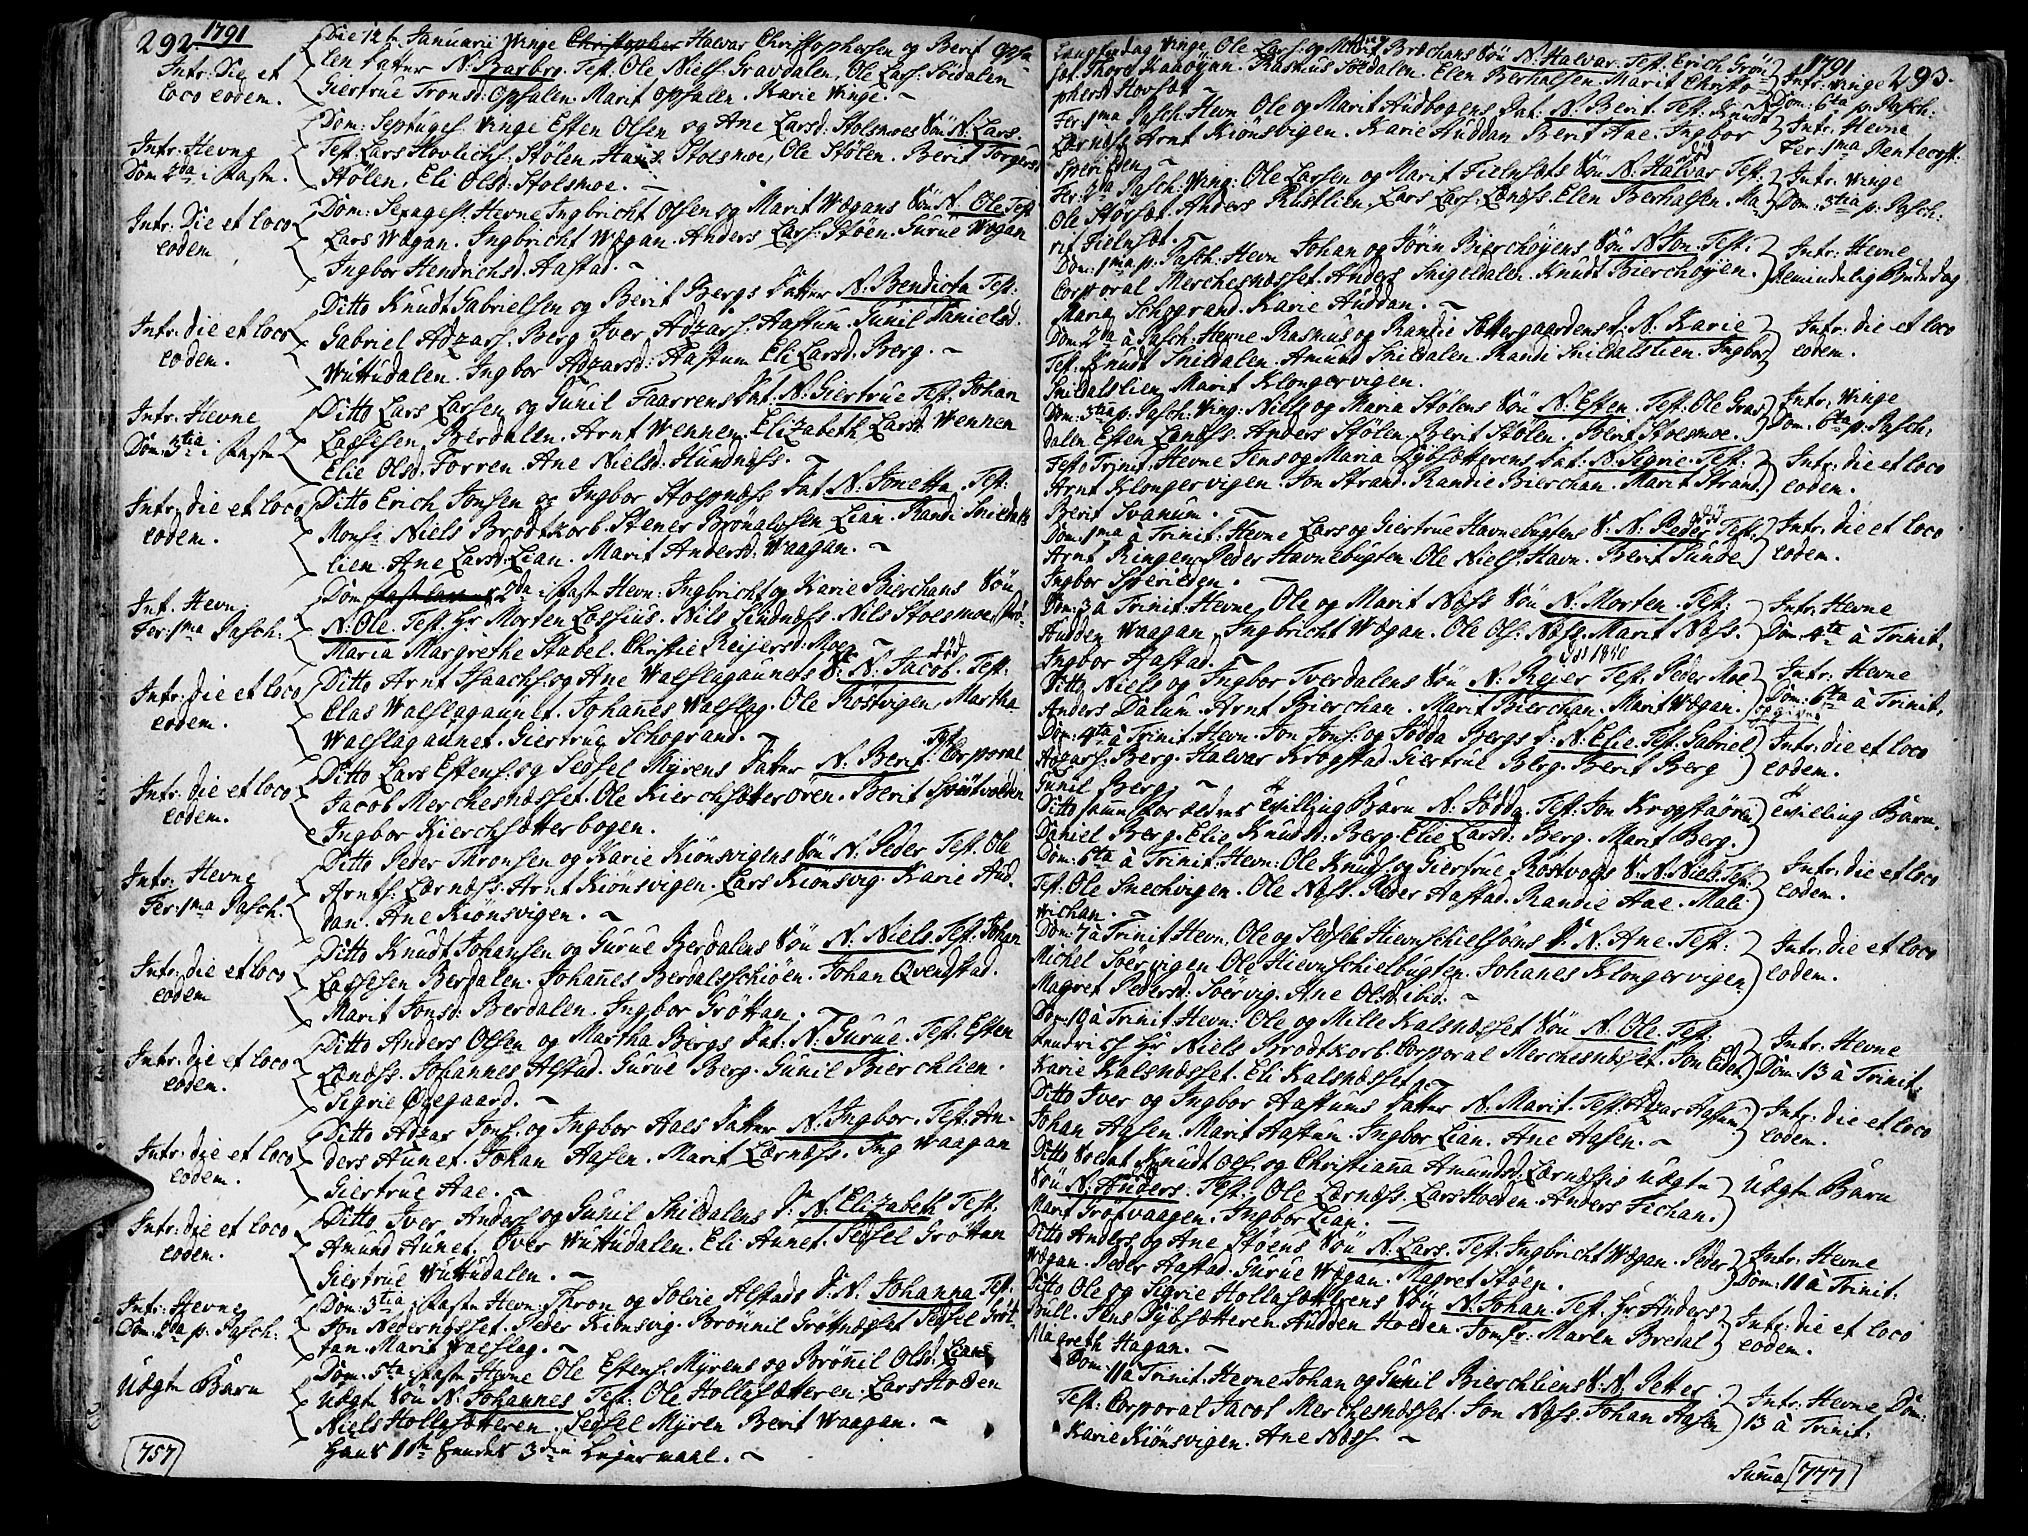 292 1791
Die 12 t. Januarii Winge Christopher Halvar Christophersen og Berit Opsa-
Intr. Die et
loco eodem.
len datter N. Barbro. Test: Ole Niels: Gravdalen, Ole Lars: Södalen
Giertrue Tronsd: Opsalen. Marit Opsalen. Karie Winge.
Intr: Hevne
Dom 2da i Faste.
Dom: Septuges: Winge Esten Olsen og Ane Larsd. Stolsmoes Sön N. Lars.
Test: Lars Hovlichs: Stölen, Stolsmoe, Ole Stölen. Berit Torgersd
Stölen, Eli Olsd. Stolsmoe.
Intr: Die et loco
eodem
Dom: Sexages: Hevne Ingbricht Olsen og Marit Wægans Sön N. Ole Test
Lars Wægan. Ingbricht Wægan. Anders Lars: Stöen. Gurue Wægan
Ingbor Hendrichsd. Hastad.
Intr: die et loco
eodem.
Ditto Knudt Gabrielsen og Berit Bergs datter N. Bendicta Test.
Gabriel Adzars. Berg Iver Adzars. Hastum. Gunil Danielsd.
Wuttudalen. Ingbor Adzarsd: Hastum Eli Larsd. Berg.
Intr: Hevne
Dom: 3tia i Faste
Ditto Lars Larsen og Gunil Faarrens dat. N. Giertrue Test. Johan
Lassesen, Berdalen. Arnt Wennen. Elizabeth Larsd. Wennen
Elie Olsd. Forren. Ane Nielsd. Hundnæss.
Intr: die et loco
eodem.
Ditto Erich Jonsen og Ingbor Stolpnæss Dat N. Jonetta. Test:
Monsr. Niels Brodtkorb. Stener Brönalpsen Lian. Randi Snildals
lien. Ane Larsd. Lian. Marit Andersd. Waagan.
Int. Hevn
Fer: 1ma Pasch.
Dom 2da i Faste Hevn: Ingbricht og Karie Bierchans Sön
N. Ole. Test. Hr Morten Lossius. Nils Lindnæss. Nils Stolsmoe,
Maria Margrethe Stabel. Christie Reijersd. Moe.
Intr: die et loco
eodem.
Ditto Arnt Isaachs. og Ane Walslagaunets S: N. Jacob. Test: död
Elas Walslagaunet. Johanes Walslag. Ole Rostvigen, Martha
Walslagaunet. Giertrue Schogrand.
Intr: die et loco
eodem.
Ditto Lars Estens. og Sedsel Myrens datter N. Berit. Test. Corporal
Jacob Merchesnæsset. Ole Kierchsætterören. Berit
Ingbor Kierchsætterbogen.
Intr: Hevne
Fer: 1ma Pasch.
Ditto Peder Thronsen og Karie Kiönsvigens Sön N. Peder Test. Ole
Arnts. Lernæs. Arnt Kiönsvigen. Lars Kiönsvig. Karie Aud-
dan. Ane Kiönsvigen.
Intr: die et loco
eodem
Ditto Knudt Johansen og Gurue Berdalens Sön N. Niels. Test. Johan
Lassesen Berdalen. Johanes Berdalsschiöen. Johan Qvendstad.
Marit Jonsd. Berdalen. Ingbor Gröttan.
Intr: die et loco
eodem.
Ditto Anders Olsen og Martha Bergs Dat. N. Gurue. Test. Esten
Lænæss. Johannes Alstad. Gurue Berg. Gunil Bierchlien.
Sigrie Ödegaard.
Intr: die et loco
eodem.
Ditto Adzar Jons. og Ingbor Haes datter N. Ingbor. Test. An-
ders Aunet. Johan Aasen. Marit Lærnæss. Ing Waagan
Giertrue Aae.
Intr: die et loco
eodem.
Ditto Iver Anders og Gunil Snildalens D: N. Elizabeth Test.
Amund Aunet. Iver Wuttudalen. Eli Aunet. Sedsel Gröttan
Giertrue Wuttudalen.
Intr: Hevne
Dom: 2da p. Pasch:
Dom: 3tia i Faste Hevn: Thron og Solvie Alstads D. N. Johanna Test.
Jon Nedernæsset. Peder Kiönsvig. Brönnil Gröttnæsset Sedsel Gröt-
tan. Marit Walslag.
Uægte Barn
Dom. 5ta i Faste Hevne Ole Estens. Myrens og Brönnil Olsd. Lians
Uægt Sön N. Johannes Test. Ole Hollasætteren. Lars Hoeden
Niels Hollasætteren. Sedsel Myren Berit Waagan.
Hans 1te hendes 3die Lejermaal.
757

1791 293.
Langfredag Winge Ole Lars. og Marit Brechans Sön N. Halvar. Test: Erich Grön
set Thore Kanöyan. Rasmus Södalen. Elen Berhalsen. Marit Christo-
phersd Hovset
Intr: Winge
Dom: 6ta p. Pasch:
Fer: 1ma Pasch. Hevn Ole og Marit Audbogens dat. N. Berit. Test. Knudt
Lernæs Arnt Kiönsvigen. Karie Auddan Berit Aae. Ingbor
Sperilden.
Intr: Hevne
Fer: 1ma Pentecost:
Fer. 2da Pasch. Wing: Ole Larsen og Marit Fielnsets Sön N. Halvar Test. död
Ole Störset. Anders Rustlien. Lars Lars: Lænæss. Elen Berhalsen. Ma-
rit Fielnset.
Intr: Winge
Dom: 3tia p: Pasch:
Dom: 1ma p. Pasch. Hevn Johan og Jörin Bierchöyens Sön N. Jon. Test.
Corporal Merchesnæsset. Anders Snigeldalen. Knudt Bierchöyen.
Maria Schogrand. Karie Auddan.
Intr. Hevne
Almindelig Bededag
Dom: 2da à Pasch: Hevne. Rasmus og Randie Söttergaardens D. N. Karie
Test. Knudt Snildalen. Amund Snildalen. Randi Snildalslien. Ingbor
Snildalslien. Marit Klongervigen.
Intr: die et loco
eodem.
Dom: 3tia p. Pasch: Wing: Niels og Maria Stölens Sön N. Esten. Test. Ole Grav
dalen Esten Lændss. Anders Stölen. Berit Stölen. Berit Stolsmoe.
Intr: Winge
Dom: 6ta p. Pasch:
Festo Trinit. Hevne Jens og Maria Lybsætterens Dat. N. Sigrie. Test:
Arnt Klongervigen. Jon Strand. Randie Bierchan. Marit Strand.
Berit Svanum.
Intr: die et loco
eodem.
Dom: 1ma à Trinit: Hevne Lars og Giertrue Havnebugtens S: N. Peder Test. död
Arnt Ringen. Peder Havnebugten. Ole Niels: Havn. Berit Sunde
Ingbor Sperilden.
Intr: die et loco
eodem.
Dom: 3 à Trinit: Hevne Ole og Marit Næss Sön N: Morten. Test:
Audden Waagan. Ingbricht Wægan. Ole Ols: Næss. Marit Næss.
Ingbor Hastad.
Intr. Hevne
Dom 4ta à Trinit.
Ditto Niels og Ingbor Tverdalens Sön N. Rejer Test. Peder Moe.
Anders Dalum. Arnt Bierchan. Marit Bierchan. Marit Wægan.
Intr: Hevne
Dom: 6ta à Trinit.
Dom: 4ta à Trinit: Hevn. Jon Jons. og Jödda Bergs D: N. Elie. Test. Gabriel
Adzars. Berg. Halvar Krogstad. Giertrue Berg. Berit Berg
Gunil Berg.
Intr: die et loco
eodem.
Ditto samme Forældres Tvilling Barn N. Jödda. Test. Jon Krogstaören
Daniel Berg. Elie Knudsd. Berg. Elie Larsd: Berg. Marit Berg.
Tvilling Barn.
Dom: 6ta à Trinit: Hevn: Ole Knuds. og Giertrue Röstvogs S: N. Niels. Test.
Test. Ole Snechvigen. Ole Næss. Peder Hastad. Randie Aae. Male
Wichan.
Intr: die et loco
eodem.
Dom: 7 à Trinit. Hevn, Ole og Sedsel Hievnschielsöens D: N. Ane. Test:
Michel Söervigen Ole Hievnschielbugten. Johanes Klongervigen
Magret Pedersd: Söervig. Ane Olsd. ibid:
Intr: die et loco
eodem.
Dom: 10 à Trinit: Hevn: Ole og Mille Kalsnæsset Sön N. Ole. Test.
Hr Niels Brodtkorb. Corporal Merchesnæset. Jon Eidet
Karie Kalsnæsset. Eli Kalsnæsset.
Intr: Hevne
Dom: 13 à Trinit:
Ditto Iver og Ingbor Hastuns datter N. Marit. Test. Adzar Hastun
Johan Aasen. Marit Hastun. Ingbor Lian. Ane Aasen.
Intr: die et loco
eodem.
Ditto Soldat Knudt Ols. og Christianna Amundsd. Lærnæssis Uægte
Sön N. Anders. Test. Ole Lærnæss. Lars Hoeden. Anders Fichan.
Marit Grötvaagen. Ingbor Lian.
Uægte Barn
Ditto Anders og Ane Stöens Sön N. Lars. Test. Ingbricht Wægan. Peder
Wægan. Peder Hastad. Gurue Wægan. Magret Stöen.
Intr: Hevne
Dom: 11 à Trinit.
Ditto Ole og Sigrie Hollasætterens Sön N. Johan. Test. Hr Anders
Bull. Jens Lybsætteren. Audden Hoeden. Jomfr: Maren Bredal
Magreth Hagan.
Intr: die et loco
eodem.
Dom: 11 à Trinit: Hevne Johan og Gunil Bierchliens S: N. Petter.
Test: Corporal Jacob Merchesnæsset. Jon Næss. Johan Aasen
Karie Kiönsvigen. Ane Næss.
Intr: Hevne Dom:
13 à Trinit:
Suma 777